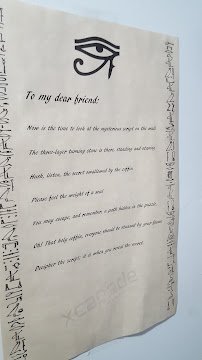 To my dear friend:
Now is the time to look at the mysterious script on the wall
The three-layer turning stone is there, standing and staying
Hush, listen, the secret swallowed by the coffin
Please feel the weight of a soul
You may escape, and remember a path hidden in the puzzle,
Oh! That holy coffin, everyone should be
Decipher the script, it is when you reveal the secret
xcapade